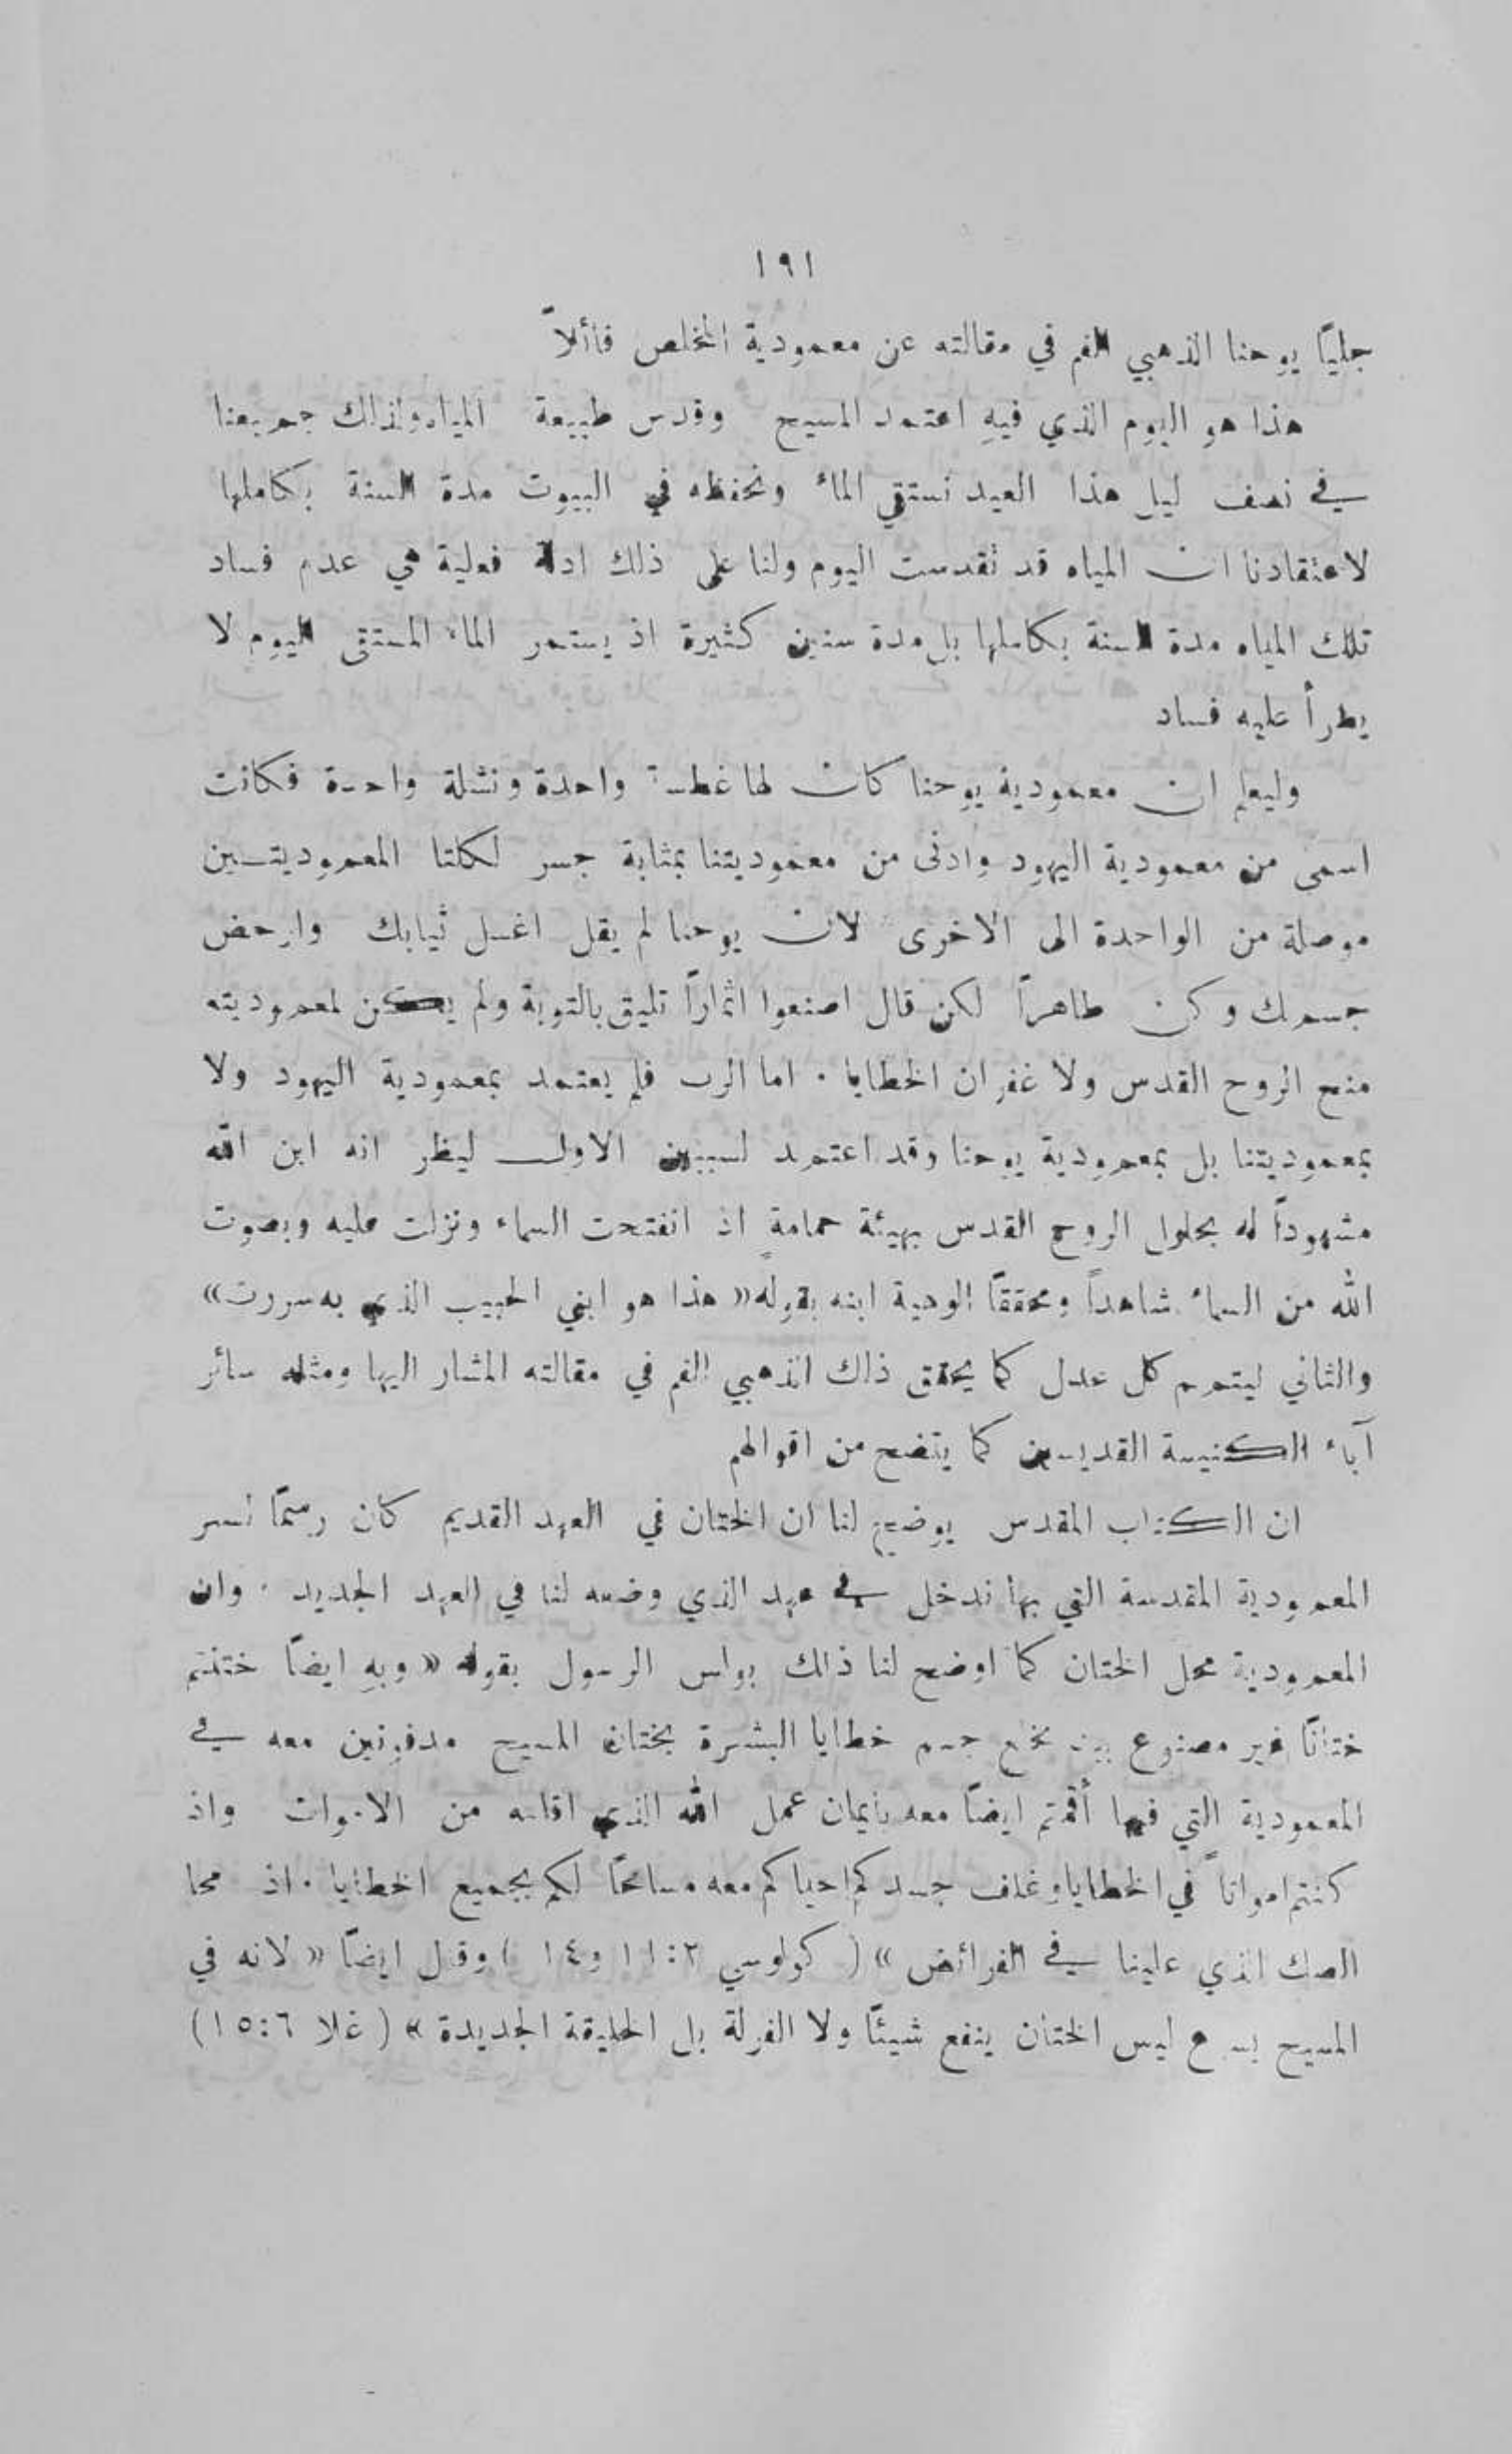 ١٩١
جليًا يوحنا الذهبي الفم في مقالته عن معمودية المخلص قائلاً
هذا هو اليوم الذي فيهِ اعتمد المسيح وقدس طبيعة المياه ولذلك جميعنا
في نصف ليل هذا العيد نستقي الماء ونحفظه في البيوت مدة السنة بكاملها
لاعتقادنا ان المياه قد نقدست اليوم ولنا على ذلك ادلة فعلية هي عدم فساد
تلك المياه مدة السنة بكاملها بل مدة سنين كثيرة اذ يستمر الماء المستقى اليوم لا
يطرأ عليه فساد
وليعلم ان معمودية يوحنا كان لها غطسة واحدة ونشلة واحدة فكانت
اسمى من معمودية اليهود وادنى من معموديتنا بمثابة جسر لكلتا المعموديتين
موصلة من الواحدة الى الاخرى لان يوحنا لم يقل اغسل ثيابك وارحض
جسمك وكن طاهراً لكن قال اصنعوا اثماراً تليق بالتوبة ولم يكن لمعموديته
منح الروح القدس ولا غفران الخطايا ٠ اما الرب فلم يعتمد بمعمودية اليهود ولا
بمعموديتنا بل بمعمودية يوحنا وقد اعتمد لسببين الاول ليظر انه ابن الله
مشهوداً له بحلول الروح القدس بهيئة حمامةٍ اذ انفتحت السماء ونزلت عليه وبصوت
الله من السماء شاهداً ومحققًا الوهية ابنه بقوله « هذا هو ابني الحبيب الذي به سررت »
والثاني ليتمم كل عدل كما يحقق ذلك الذهبي الفم في مقالته المشار اليها ومثله سائر
آباء الكنيسة القديسين كما يتضح من اقوالهم
ان الكتاب المقدس يوضح لنا ان الختان في العهد القديم كان رسمًا لسر
المعمودية المقدسة التي بها ندخل في عهد الذي وضعه لنا في العهد الجديد ٠ وان
المعمودية محل الختان كما اوضح لنا ذلك بولس الرسول بقوله « وبهِ ايضًا ختنتم
ختانًا غير مصنوع بيد بخلع جسم خطايا البشرة بختان المسيح مدفونين معه في
المعمودية التي فيها أقمتم ايضًا معه بايمان عمل الله الذي اقامه من الاموات واذ
كنتم امواتاً في الخطايا وغلف جسدكم احياكم معه مسامحًا لكم بجميع الخطايا ٠ اذ محا
الصك الذي علينا في الفرائض » ( كولوسي ٢ : ١١ و١٤ ) وقال ايضًا « لانه في
المسيح يسوع ليس الختان ينفع شيئًا ولا الغرلة بل الخليقة الجديدة » ( غلا ٦ : ١٥ )